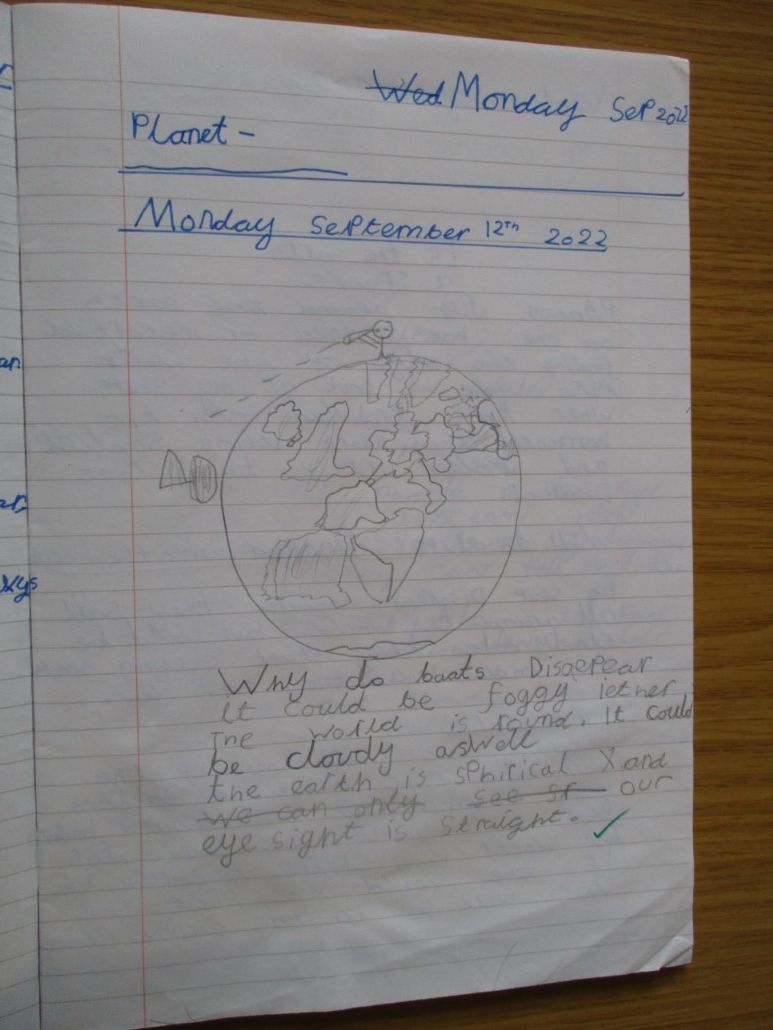 Wed Monday Sep 2022
Planet -
Monday September 12th 2022
Why do boats Disaepear
It could be foggy iether
The world is round. It could
be cloudy aswell
the earth is sphirical X and
we can only see st our
eye sight is straight.
an
xys